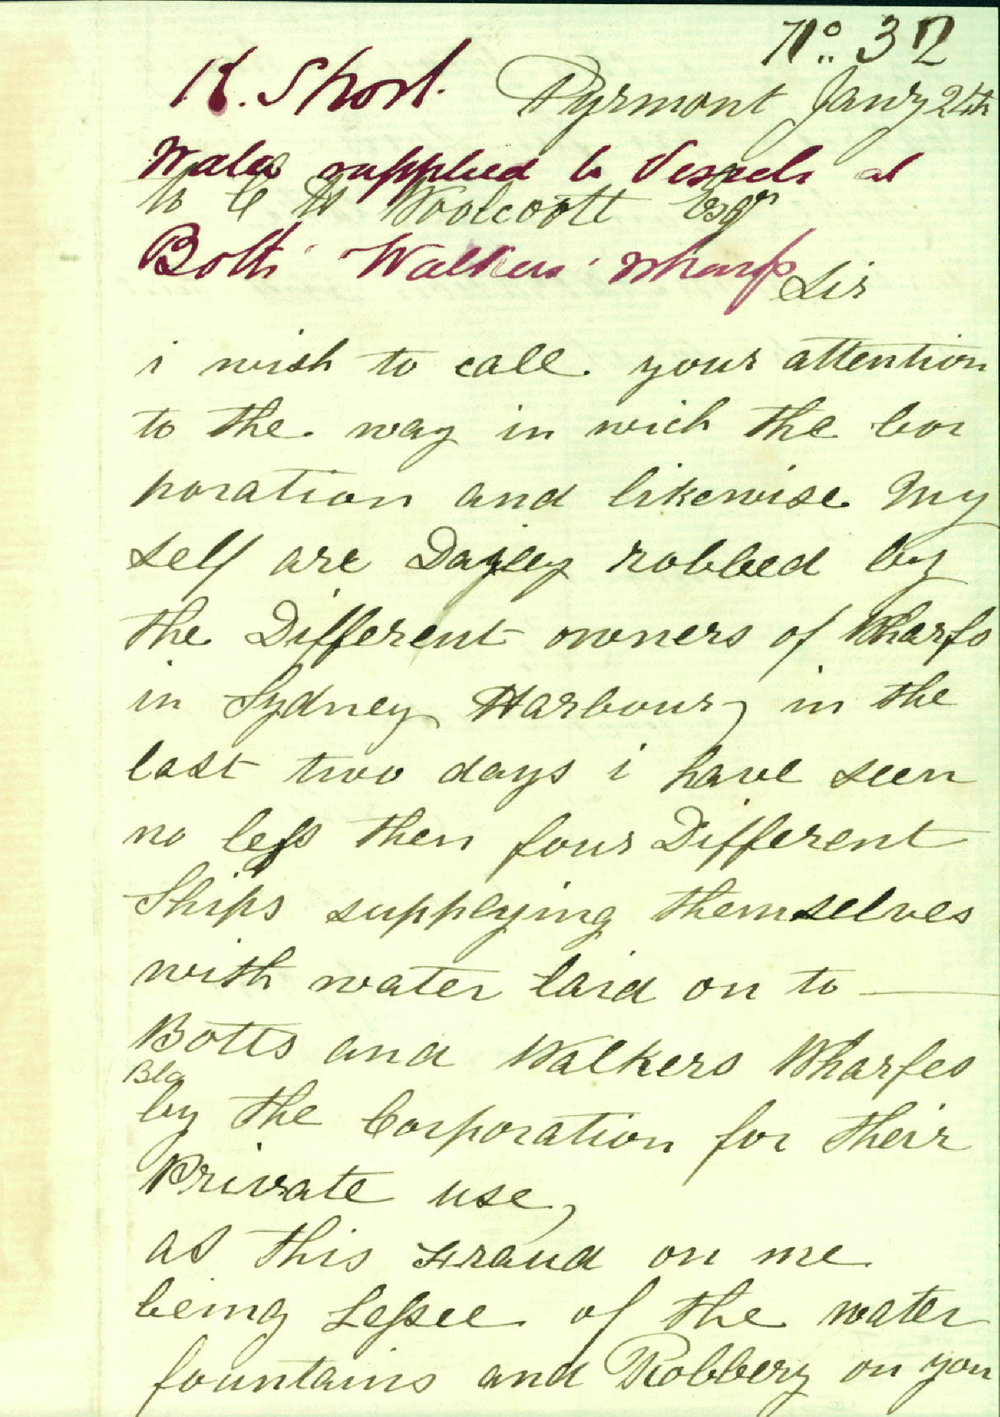 No. 32
K. Short.
Pyrmont Jany 24th
Water supplied to Vessels at
to C H Woolcott Esqr
Botts' Walkers' Wharf
Sir
i wish to call your attention
to the way in wich the Cor
poration and likewise My
self are Dayley robbed by
the Different owners of Wharfs
in Sydney Harbour, in the
last two days i have seen
no less then four Different
Ships supplying themselves
with water laid on to —
Botts and Walkers Wharfes
by the Corporation for their
Private use,
as this Fraud on me
being Lessee of the water
fountains and Robbery on you